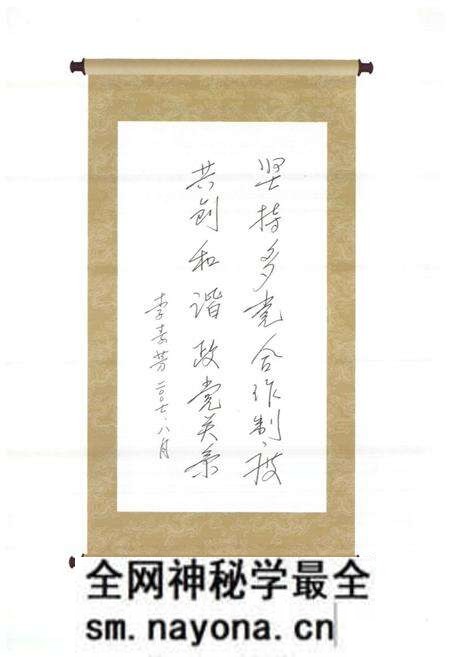 坚持多党合作制度
共创和谐政党关系
李素芳 二〇〇七.八月
全网神秘学最全
sm.nayona.cn